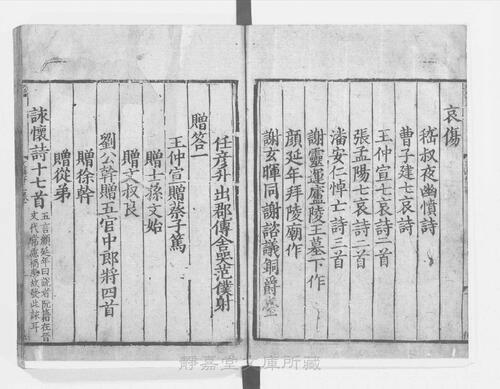 哀傷
嵇叔夜幽憤詩
曹子建七哀詩
王仲宣七哀詩二首
張孟陽七哀詩二首
潘安仁悼亡詩三首
謝靈運廬陵王墓下作
顔延年拜陵廟作
謝玄暉同謝諮議銅爵臺
任彦升出郡傳舍哭范僕射
贈荅一
王仲宣贈蔡子篤
贈士孫文始
贈文叔良
劉公幹贈五官中郎將四首
贈徐幹
贈從弟
詠懷詩十七首
五言顔延年曰說者阮籍在晉
文代常慮禍患故發此詠耳
静嘉堂文庫所蔵